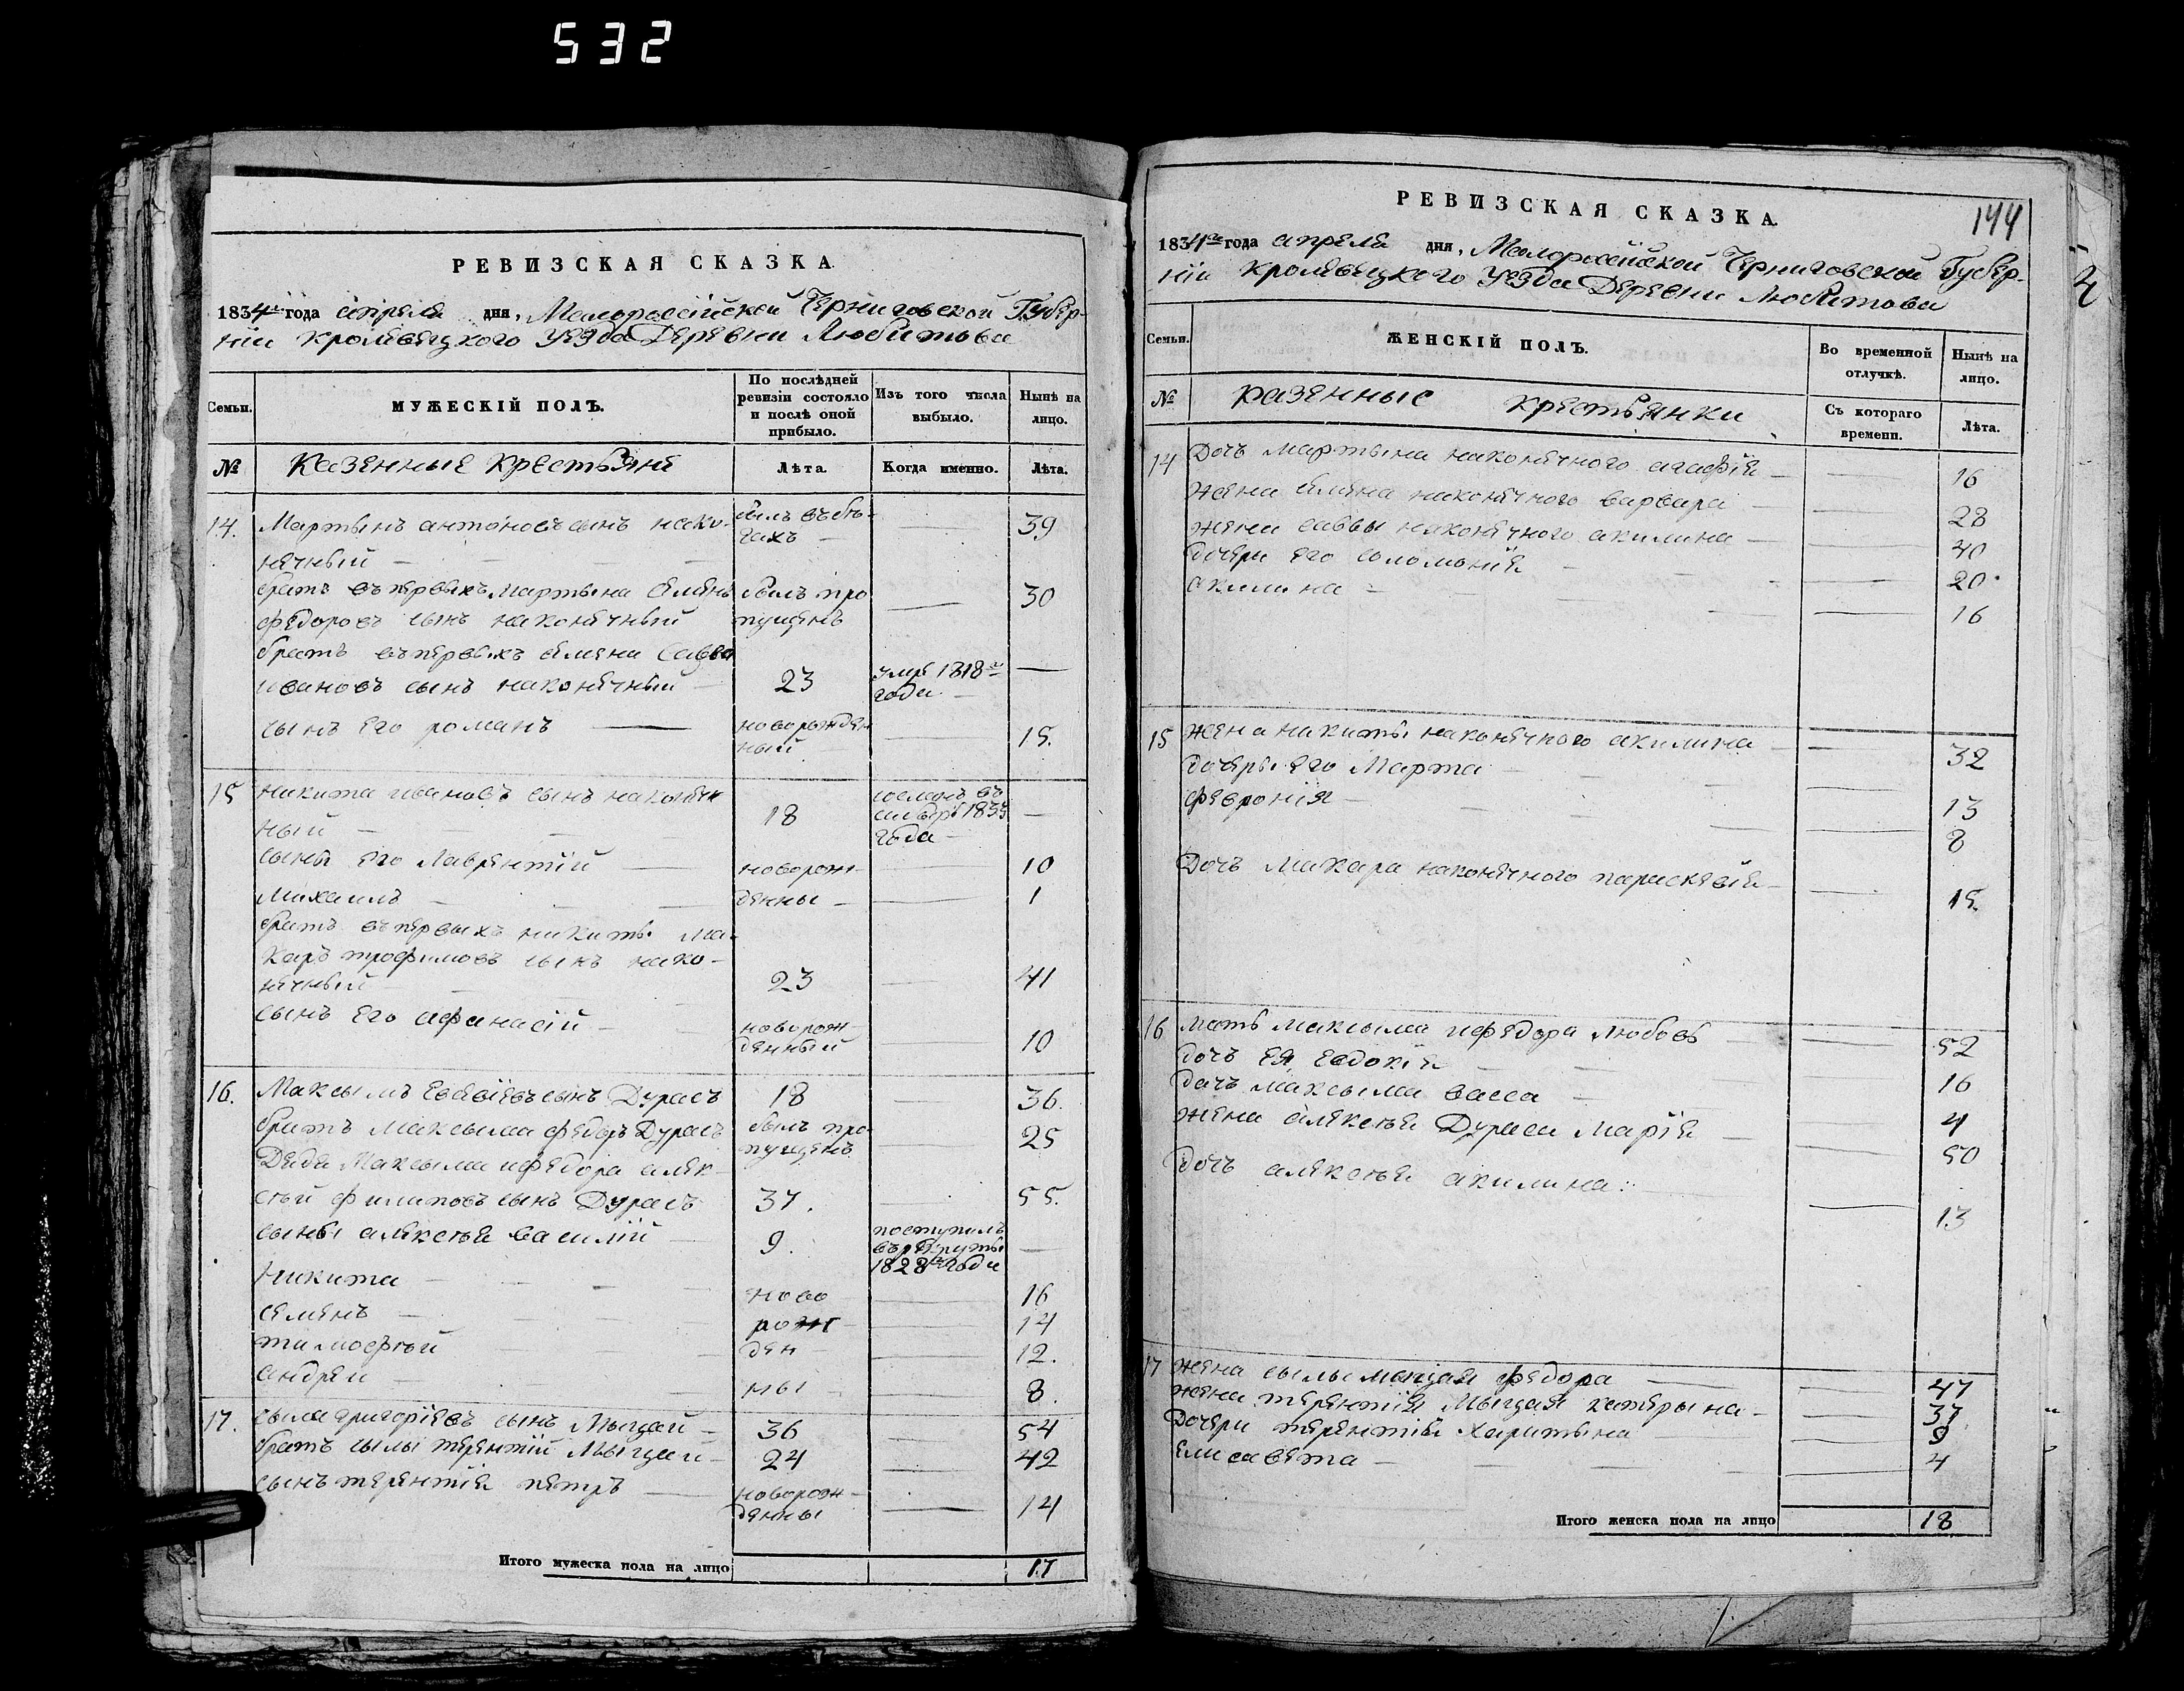 532
РЕВИЗСКАЯ СКАЗКА
1834го года апреля дня, Малороссійской Черниговской Губер-
ніи Кролевецкого Уезда Деревни Любитова
Семьи. МУЖЕСКІЙ ПОЛЪ. По послѣдней ревизіи состояло и послѣ оной прибыло. Изъ того числа выбыло. Нынѣ на лицо.
№ Казенные крестьяне Лѣта. Когда именно. Лѣта.
14. Мартынъ антоновъ сынъ нако- былъ въ бѣ- 39
нечный гахъ
братъ въпервыхъ мартына семенъ былъ про 30
федоровъ сынъ наконечный пущенъ
братъ въпервыхъ семена савва
ивановъ сынъ наконечный 23 умре 1818го года
сынъ его романъ новорожден 15.
ный
15 никита ивановъ сынъ наконеч 18
ный года
сыны его лаврентій новорож- 10
михаилъ денны 1
братъ въпервыхъ никиты ма-
каръ трофимовъ сынъ нако-
нечный 23 41
сынъ его афанасій новорож- 10
денный
16. Максымъ сынъ Дурасъ 18 36.
братъ максыма федоръ Дурасъ былъ про 25
Дядя Максыма ифедора алек- пущенъ
сѣй филиповъ сынъ Дурасъ 37. 55.
сыны алексѣя василій 9. поступилъ въ рекруты 1828го года
Никита ново 16
семенъ рож 14
тимофѣй ден 12.
андрей ны 8.
17. сыла григоріевъ сынъ Мыцай 36 54
братъ сылы терентій Мыцай 24 42
сынъ терентія петръ новорож- 14
денны
Итого мужеска пола на лицо 17
РЕВИЗСКАЯ СКАЗКА.
144
1834го года апреля дня, Малороссійской Черниговской Губер-
ніи кролевецкого Уезда Деревни Любитова
Семьи. ЖЕНСКІЙ ПОЛЪ. Во временной отлучкѣ. Нынѣ на лицо.
№ казенные крестьянки Съ котораго времени. Лѣта.
14 Дочъ мартына наконечного агафія 16
жена семена наконечного варвара 28
жена саввы наконечного акилина 40
дочери его соломонія 20
акилина 16
15 жена никиты наконечного акилина 32
дочеры его Марта 13
феvронія 8
Дочъ макара наконечного параскевія 15.
16 мать максыма ифедора любовъ 52
дочъ ея евдокія 16
дочъ максыма васса 4
жена алексѣя Дураса марія 50
дочъ алексѣя акилина: 13
17 жена сылы мыцая федора 47
жена терентія Мыцая катерына 37
Дочери терентія харитына 9
елисавета 4
Итого женска пола на лицо 18